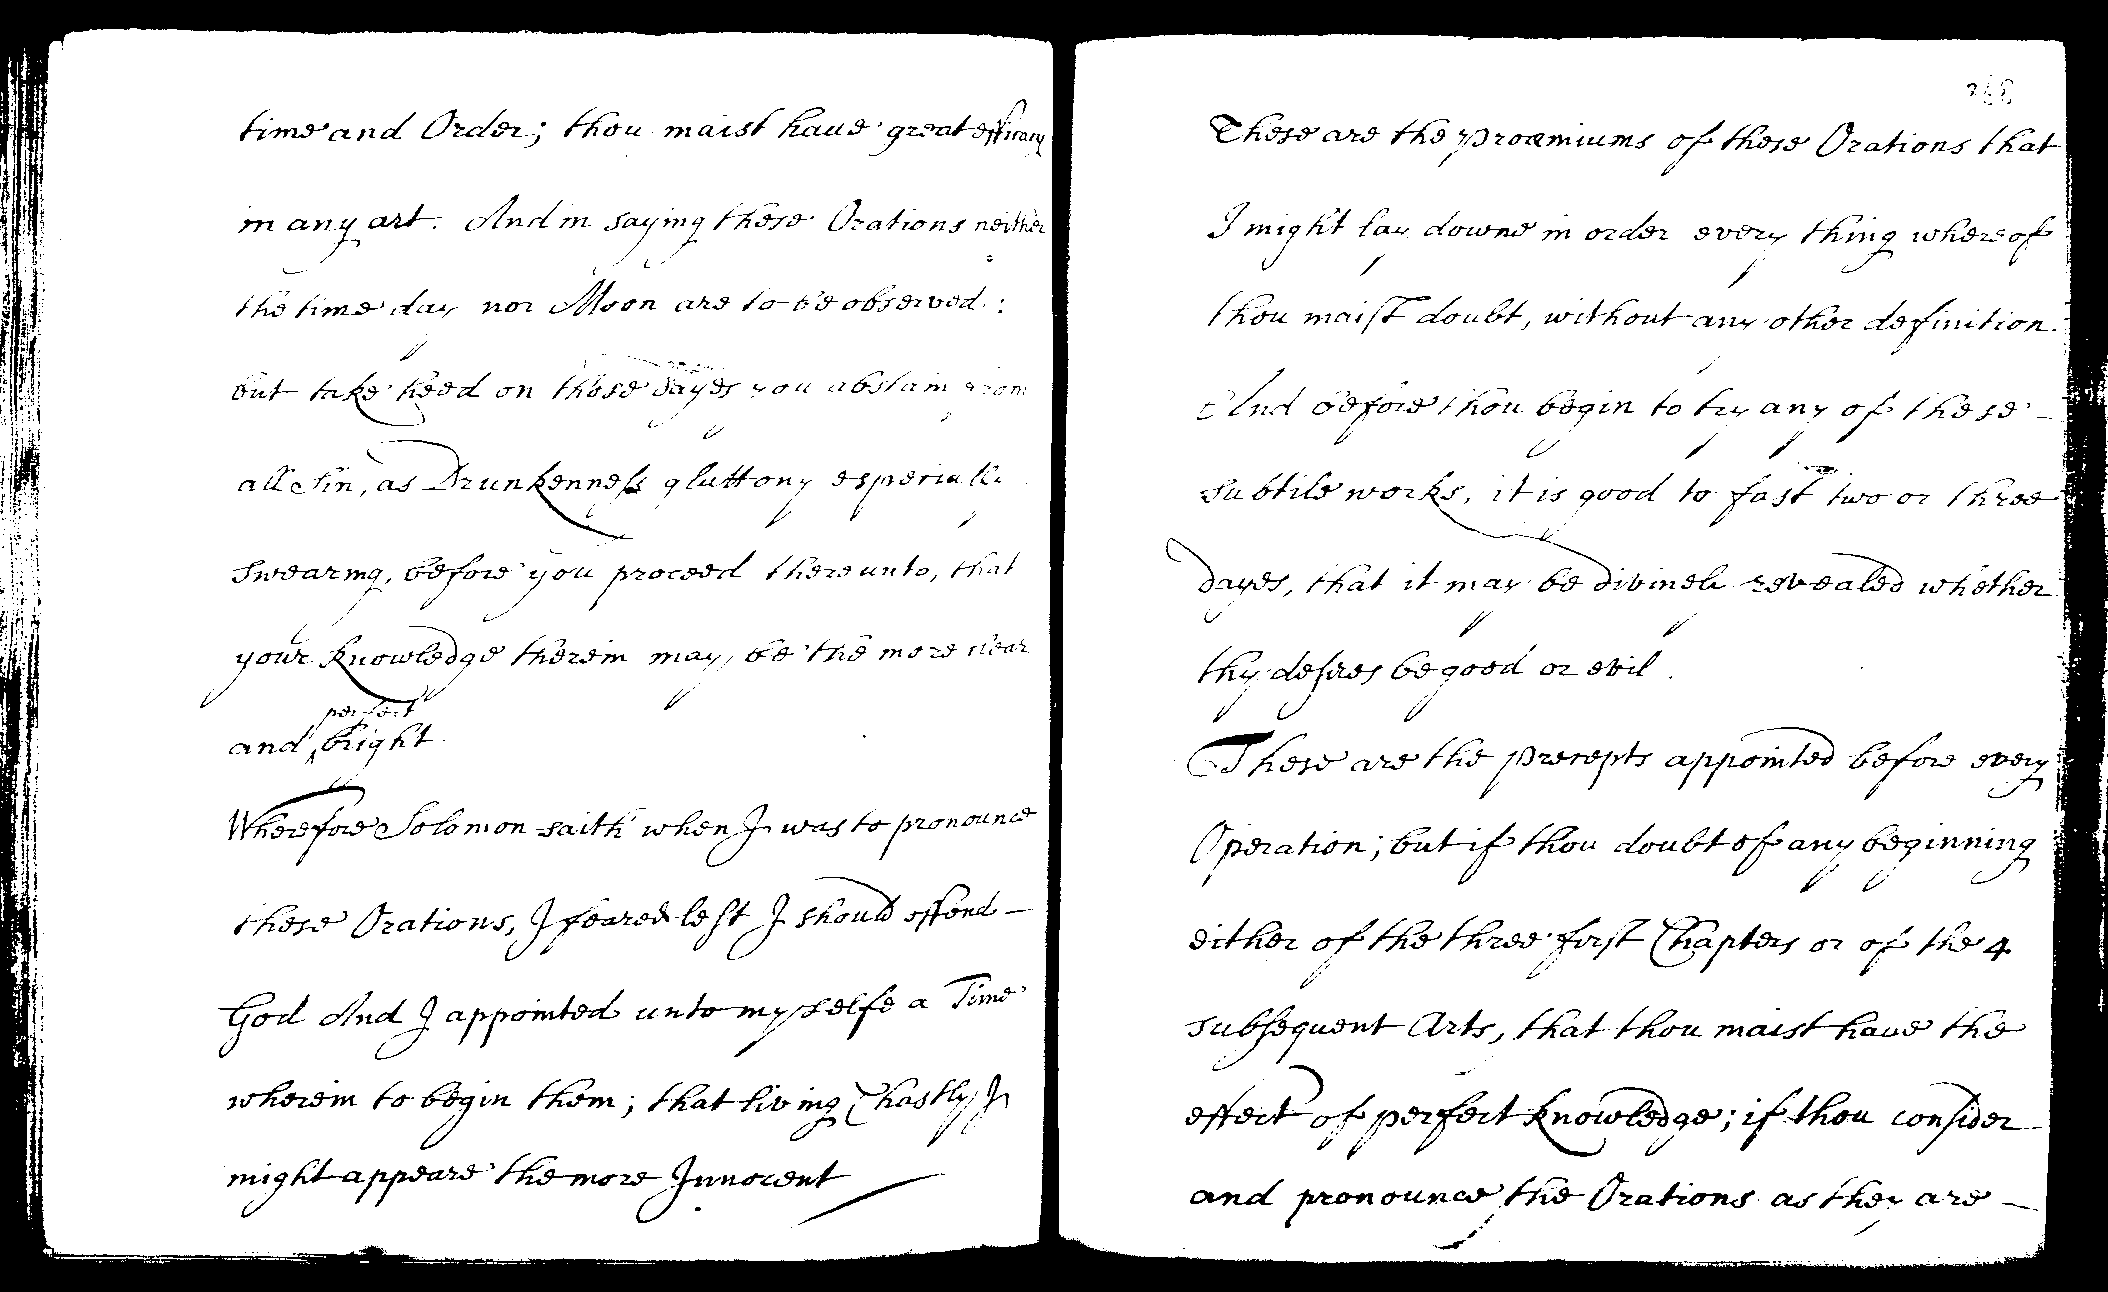 time and Order; thou maist haue great efficacy
in any art. And in saying these Orations neither
the time day nor Moon are to be observed:
but take heed on those dayes you abstain from
all Sin, as Drunkenness gluttony especially
swearing, before you proceed thereunto, that
your knowledge therein may be the more clear
perfect
and ‸bright.
Wherefore Solomon saith when I was to pronounce
these Orations, I feared lest I should offend —
God And I appointed unto myselfe a Time
wherein to begin them; that living Chastly I
might appeare the more Innocent
These are the proæmiums of these Orations that
I might lay downe in order every thing whereof
thou maist doubt, without any other definition.
And before thou begin to try any of these —
subtile works, it is good to fast two or three
dayes, that it may be divinely revealed whether
thy desires be good or evil.
These are the precepts appointed before every
Operation; but if thou doubt of any beginning
either of the three first Chapters or of the 4
subsequent Arts, that thou maist haue the
effect of perfect knowledge; if thou consider
and pronounce the Orations as they are —